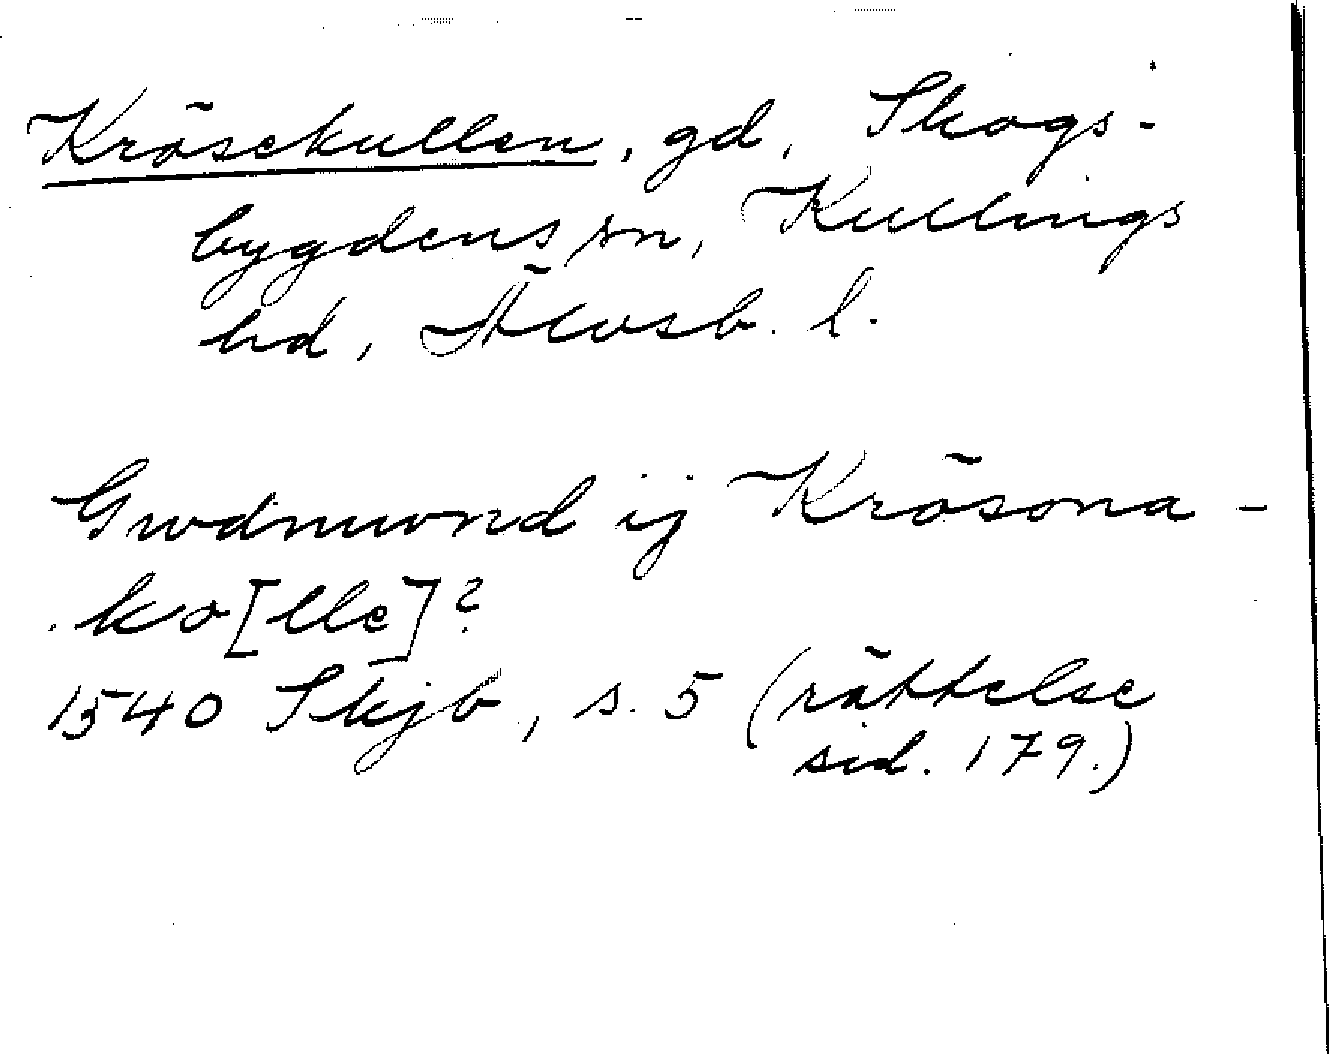 Krösekullen, gd, Skogs-
bygdens sn, Kullings
hd, Älvsb. l.
Gwdmwnd ij Krösona-
ko[lle]?
1540 Skjb, s. 5 (rättelse
sid. 179.)